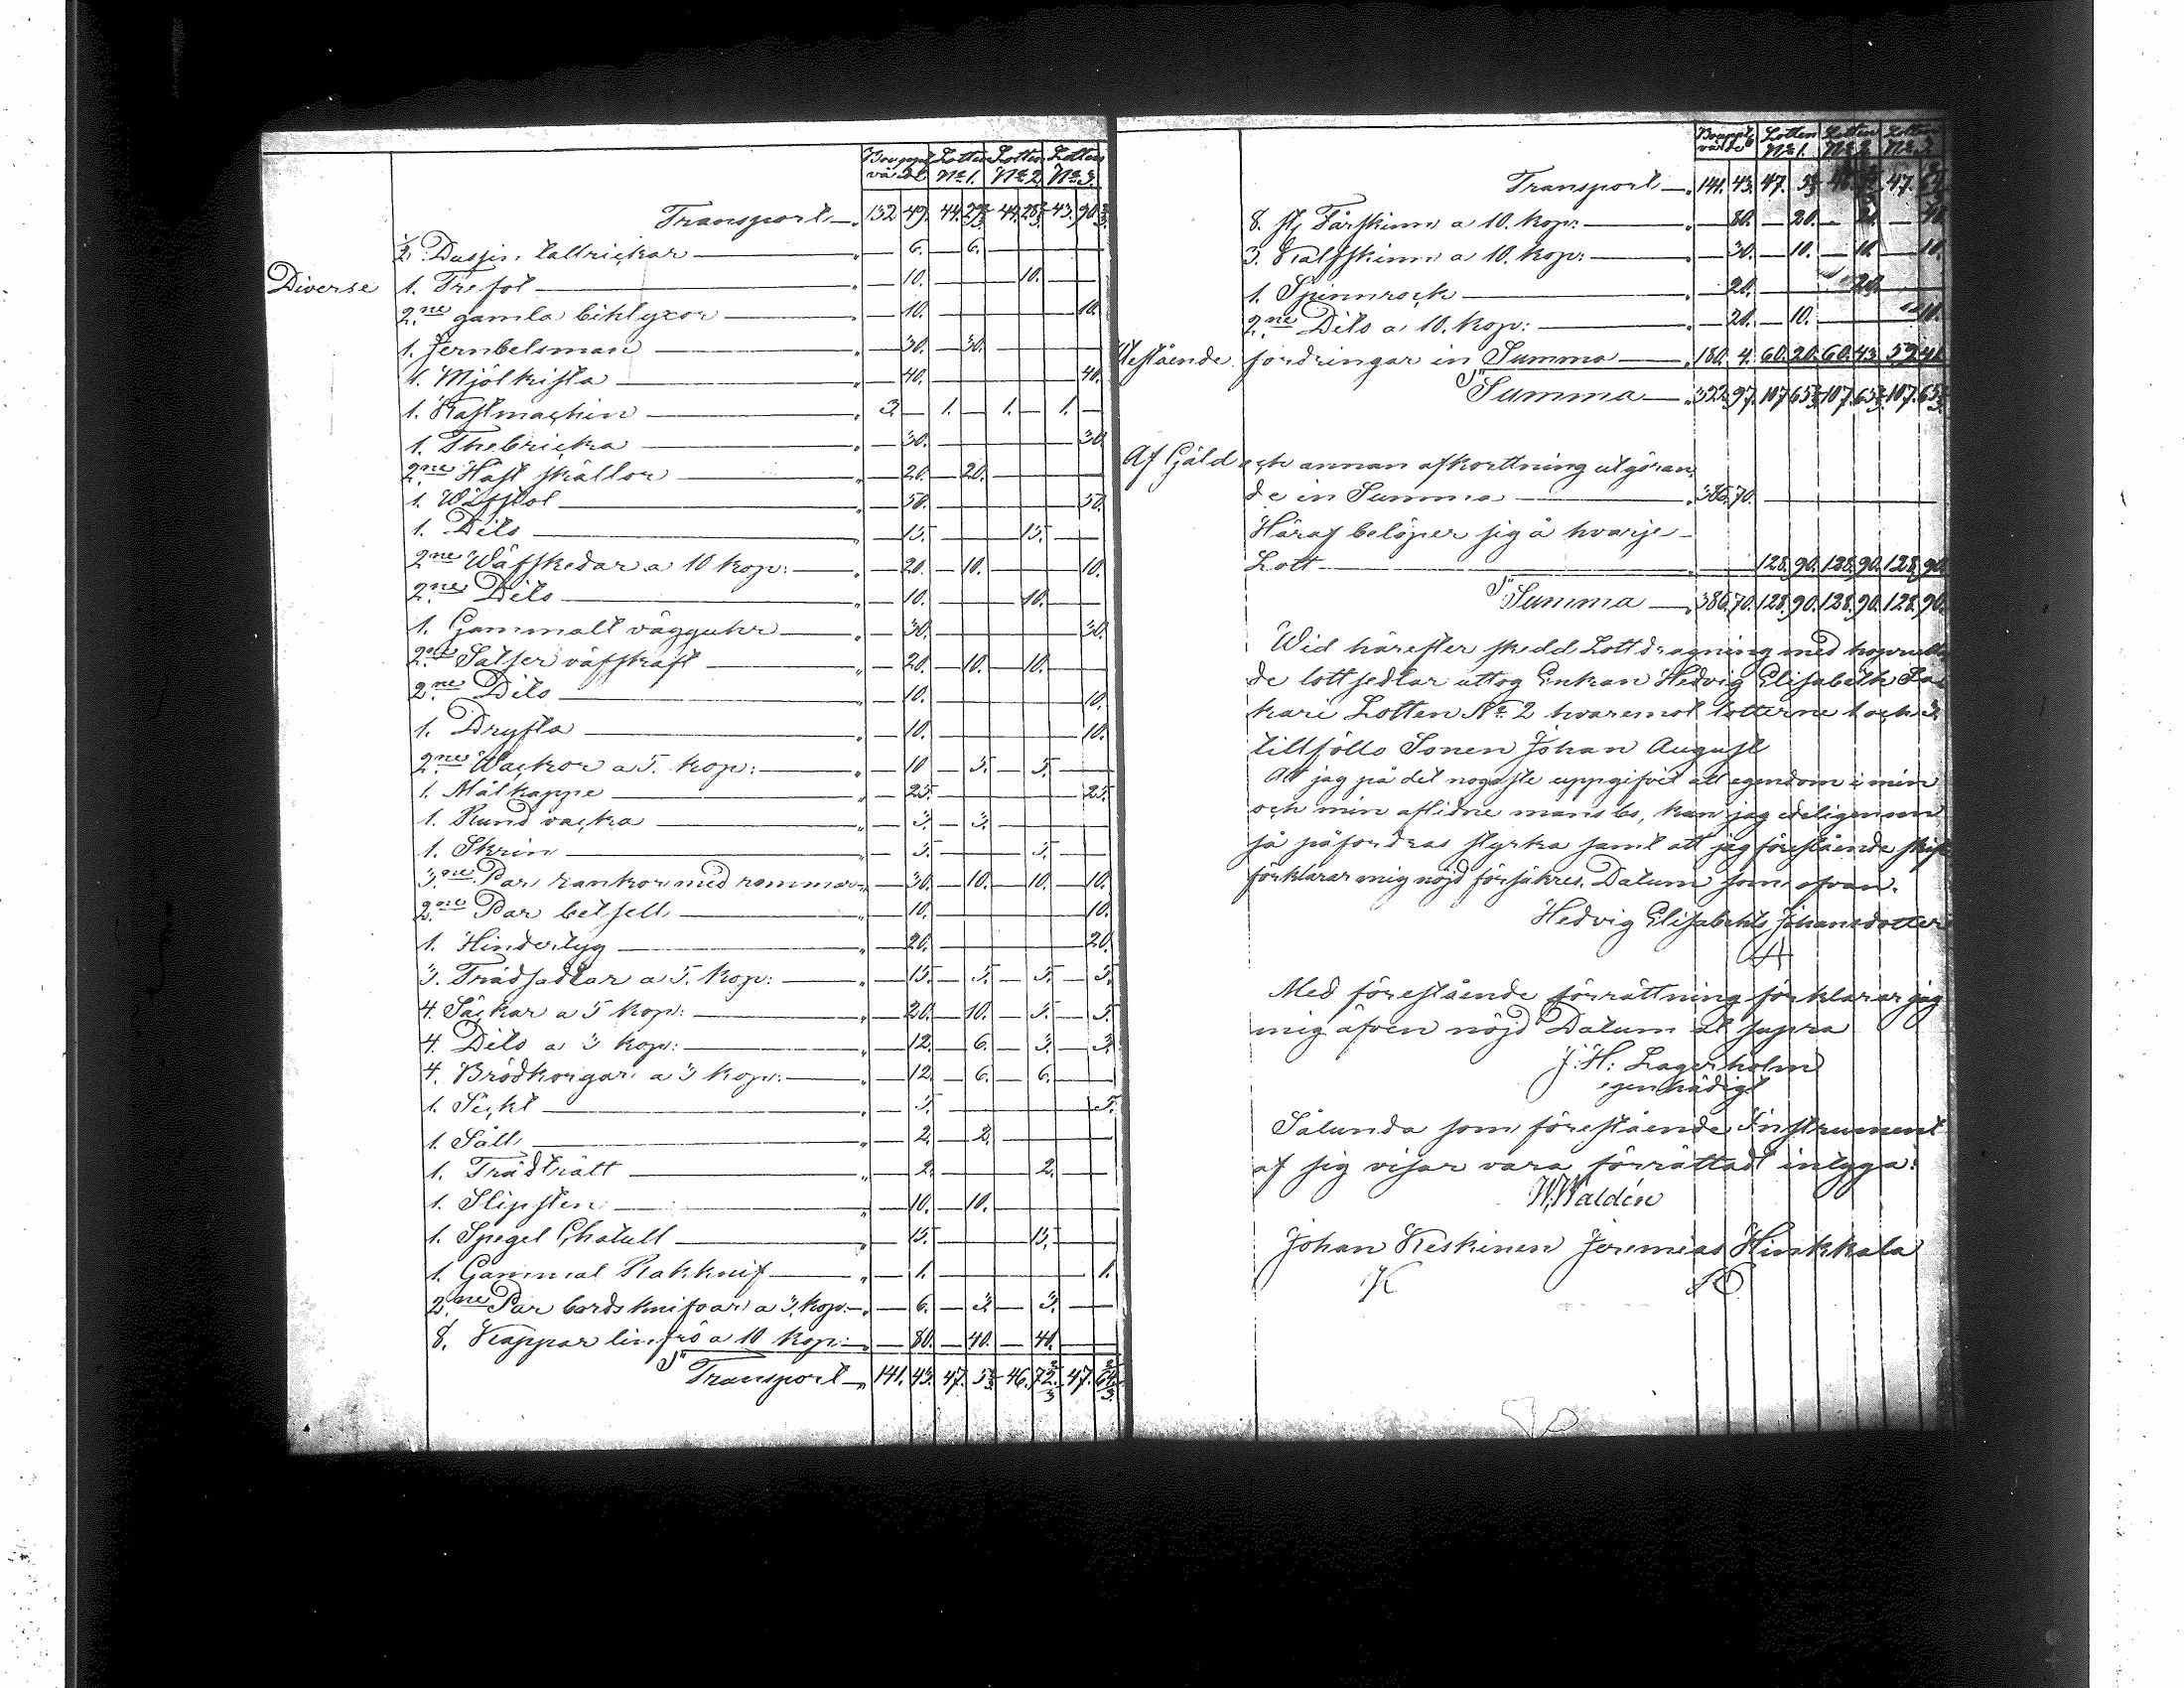 Bouppt Lotten Lotten Lotten
värde No 1. No 2 No 3.
Transport 132 49. 44. 29 2/3 44. 28 2/3 43. 90 2/3
1/2 Dussin tallrickar 6. 6.
Diverse 1. Trefot 10. 10.
2ne gamla bihlyxor 10. 10.
1. Jernbelsman 30. 30.
1. Mjölkista 40. 40.
1. Kastmachin 3. 1. 1. 1.
1. Thebricka 30. 30
2ne Häst skällor 20. 20.
1. Wäfstol 50. 50.
1. Dito 15. 15.
2ne Wäfskedar a 10 kop: 20. 10. 10.
2ne Dito 10. 10.
1. Gammalt vägguhr 30. 30.
2ne Satser väfskaft 20. 10. 10.
2ne Dito 10. 10.
1. Dryfta 10. 10.
2ne Wackor a 5. kop: 10 5. 5.
1. Målkappe 25. 25.
1. Rund vacka 3. 3.
1. Skrin 5. 5.
3ne Par rankor med remmar 30. 10. 10. 10.
2ne Par betsell 10. 10.
1. Hindertyg 20. 20.
3. Trädsadlar a 5. kop: 15. 5. 5. 5.
4. Säckar a 5 kop: 20. 10. 5. 5.
4. Dito a 3 kop: 12. 6. 3. 3.
4. Brödkorgar a 3 kop: 12. 6. 6.
1. 5. 5.
1. Såll 2. 2.
1. Trädtratt 2. 2.
1. Slipsten 10. 10.
1. Spegel Chatull 15. 15.
1. Gammal Rakknif 1. 1.
2ne Par bordsknifvar a 3. kop: 6. 3. 3.
8. Kappar linfrö a 10 kop: 80. 40. 40.
Transport 141. 43. 47. 5 2/3 46. 72 2/3 47. 64 2/3
Bouppt Lotten Lotten Lotten
värde No 1. No 2 No 3
Transport 141. 43. 47. 5 2/3 47.
8. st Fårskinn a 10. kop: 80. 20. 20. 40.
3. Kalfskinn a 10. kop: 30. 10. 10. 10.
1. Spinnrock 20. 20.
2ne Dito a 10. kop: 20. 10. 10.
Utestående fordringar in Summa 180. 4. 60. 20. 60. 43. 59. 41.
Summa 322. 97. 107 65 2/3 107. 65 2/3 107. 65 2/3
Af Gäld och annan afkorttning utgöran
de in Summa 386. 70.
Häraf belöper sig å hvarje
Lott 128. 90. 128. 90. 128. 90.
Summa 386. 70. 128. 90. 128. 90. 128. 90.
Wid härefter skedd Lottdragning med hoprulla
de lottsedlar uttog Enkan Hedvig Elisabeth
kari Lotten No 2 hvaremot lotterne 1 och 3
tillföllo Sonen Johan August
Att jag på det nogaste uppgifvit all egendom i min
och min aflidne mans bo, kan jag edeligen om
så påfordras styrka samt att jag förestående skifte
förklarar mig nöjd försäkres. Datum som ofvan.
Hedvig Elisabeth Johansdotter
Med förestående förrättning förklarar jag
mig äfven nöjd Datum ut supra
J: H: Lagerholm
egenhädigt
Sålunda som förestående Instrument
af sig visar vara förrättadt intyga:
W. Waldén
Johan Keskinen Jeremias Hinkkala